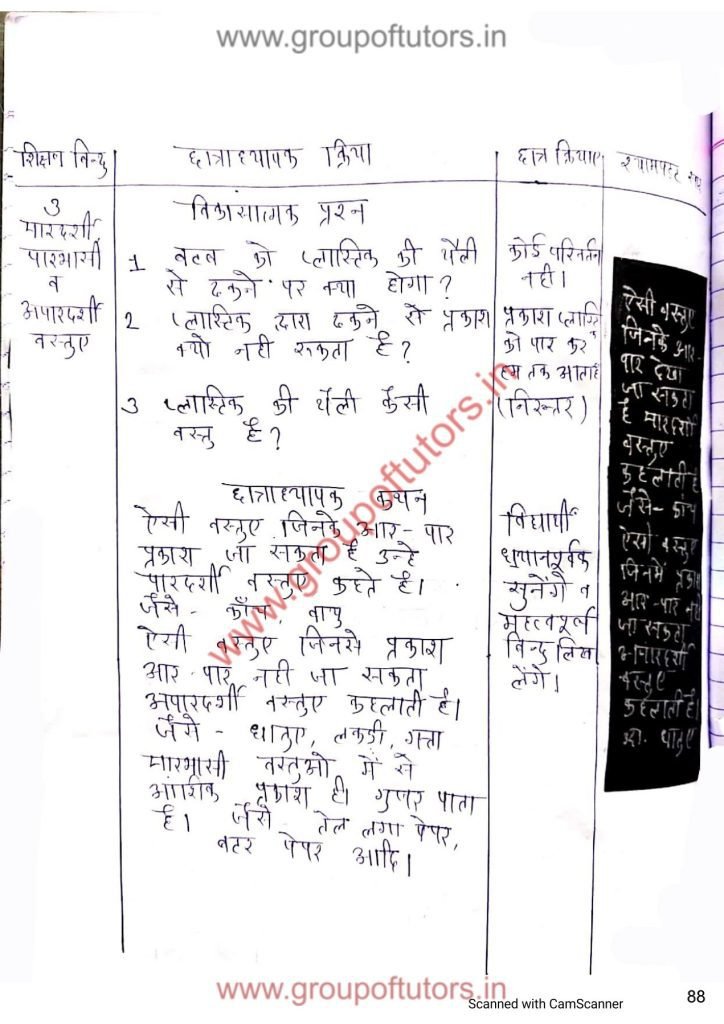 www.groupoftutors.in
शिक्षण बिन्दु
छात्राध्यापक क्रिया
छात्र क्रियाए
श्यामपट्ट
3
पारदर्शी
पारभासी
व
अपारदर्शी
वस्तुए
विकासात्मक प्रश्न
1 बल्ब को प्लास्टिक की थैली
से ढकने पर क्या होगा?
2 प्लास्टिक द्वारा ढकने से प्रकाश
क्यो नही रूकता है?
3 प्लास्टिक की थैली कैसी
वस्तु है?
कोई परिवर्तन
नही।
प्रकाश प्लास्टि
को पार कर
हम तक आता है
(निरन्तर)
छात्राध्यापक कथन
ऐसी वस्तुए जिनके आर-पार
प्रकाश जा सकता है उन्हे
पारदर्शी वस्तुए कहते है।
जैसे - काँच, वायु
ऐसी वस्तुए जिनसे प्रकाश
आर-पार नही जा सकता
अपारदर्शी वस्तुए कहलाती है।
जैसे - धातुए, लकडी, गत्ता
पारभासी वस्तुओ में से
आंशिक प्रकाश ही गुजर पाता
है। जैसे - तेल लगा पेपर,
बटर पेपर आदि।
विद्यार्थी
ध्यानपूर्वक
सुनेंगे व
महत्वपूर्ण
बिन्दु लिख
लेंगे।
ऐसी वस्तुए
जिनके आर-
पार देखा
जा सकता
है पारदर्शी
वस्तुए
कहलाती है
जैसे - कांच
ऐसी वस्तुए
जिनमें प्रकाश
आर-पार नही
जा सकता
अपारदर्शी
वस्तुए
कहलाती है।
धातुए
www.groupoftutors.in
www.groupoftutors.in
Scanned with CamScanner
88